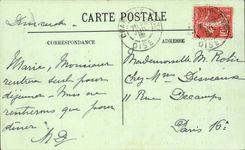 Dimanche
CARTE POSTALE
CORRESPONDANCE
ADRESSE
OISE
Marie, Monsieur
rentrera seul pour
déjeuner. Mais ne
rentrerons que pour
dîner
Mademoiselle M. Robin
chez Mme Desveaux
11 Rue Decamps
Paris 16e